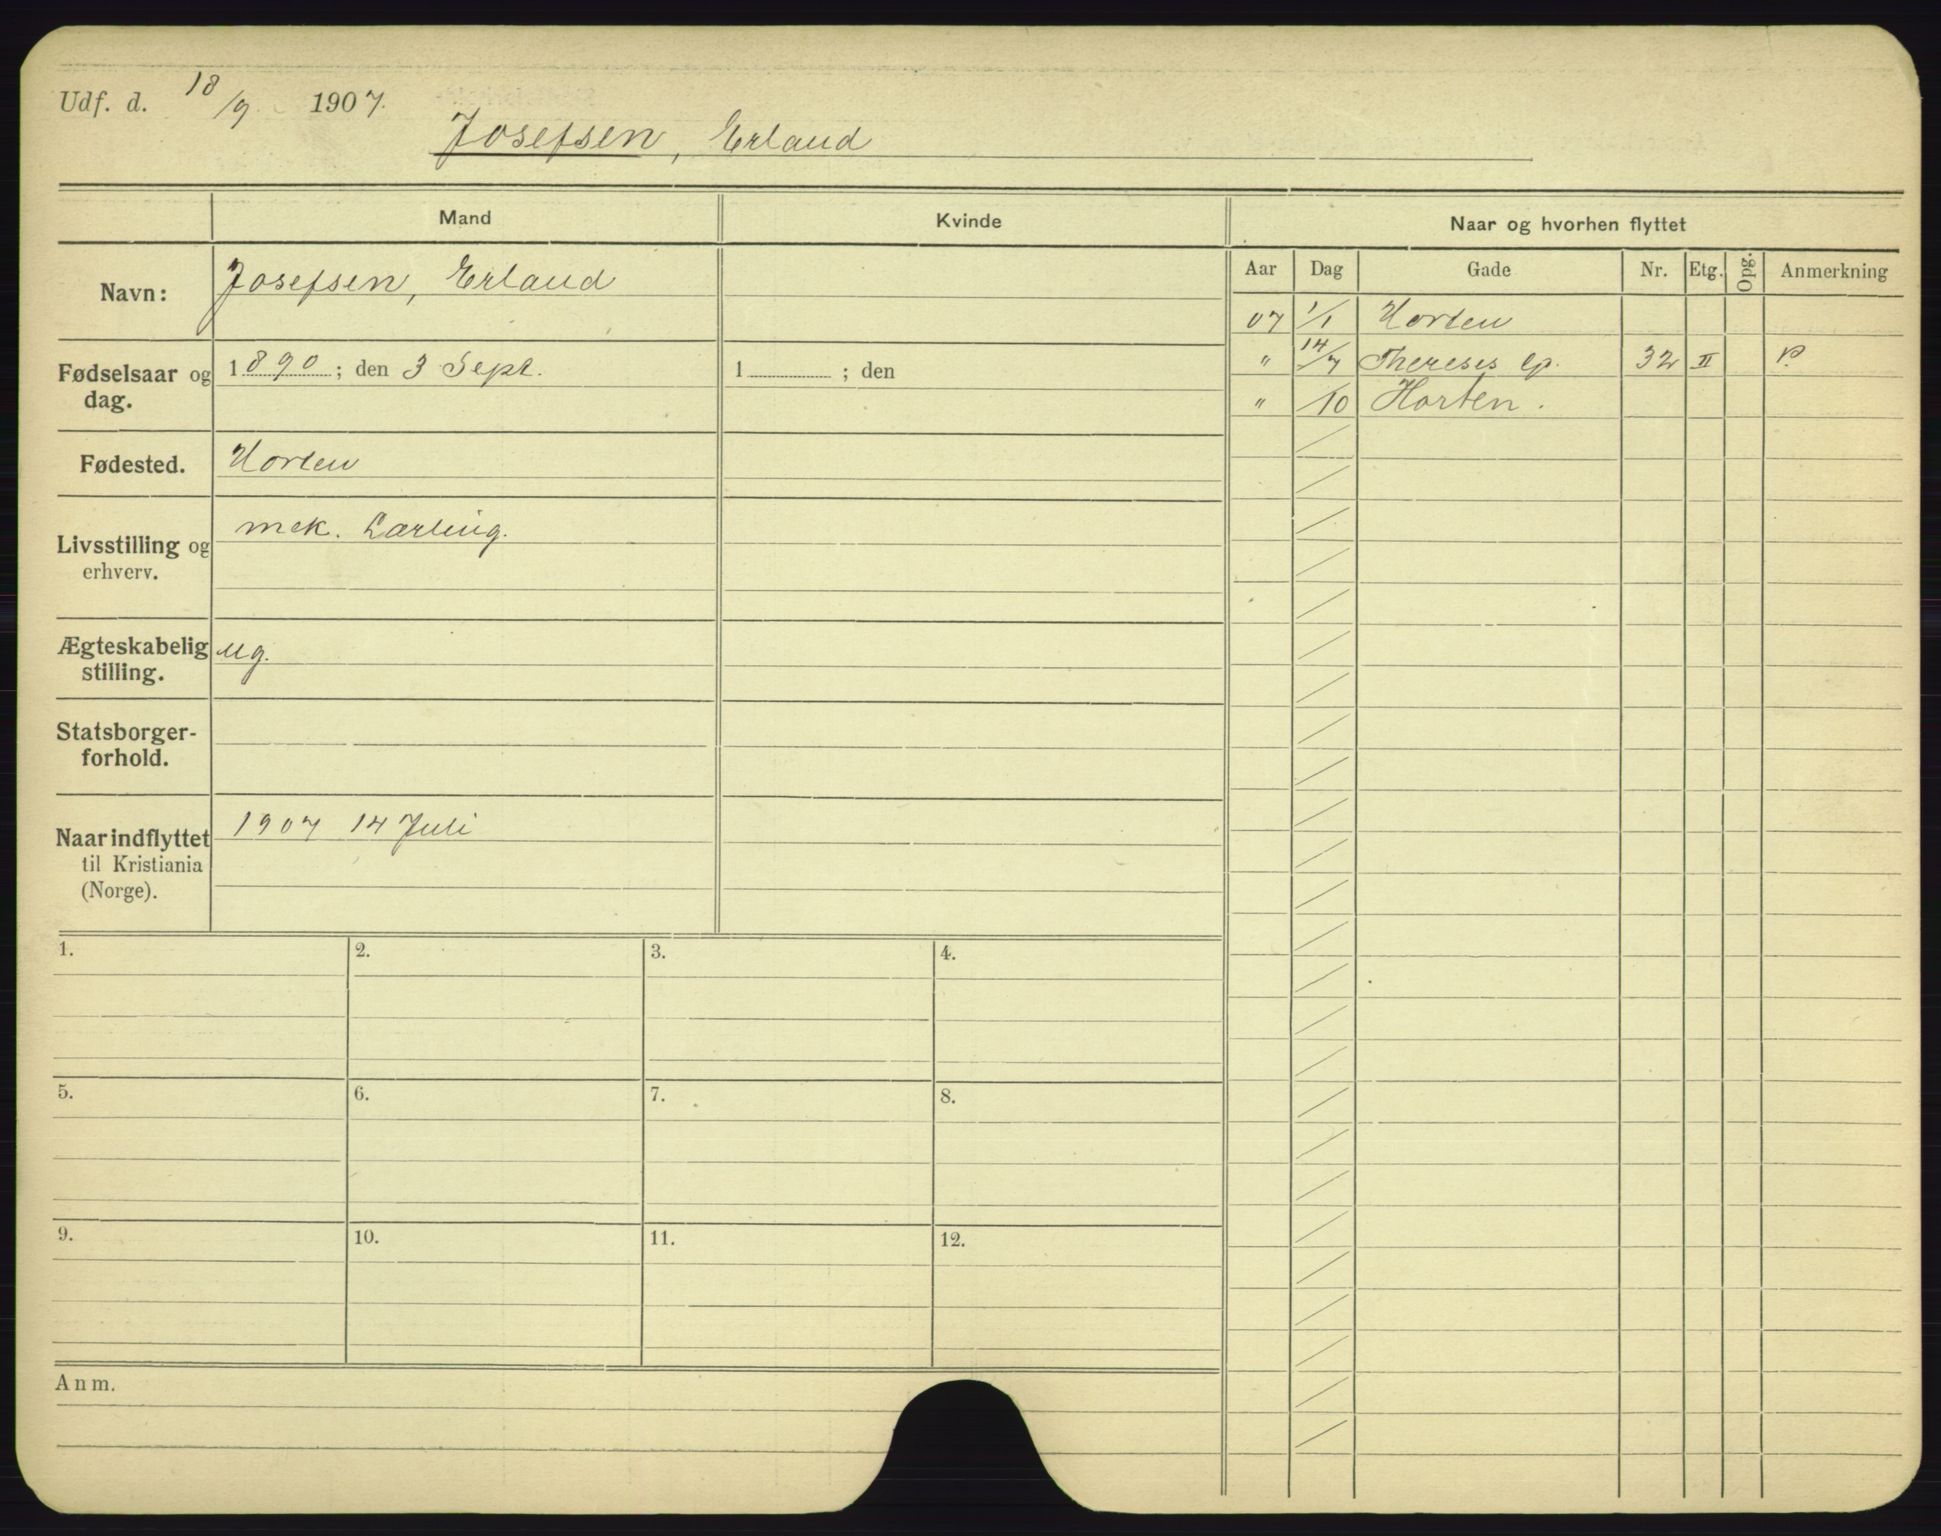 Udf. d. 18/9 1907.
Josefsen, Erland
Mand Kvinde Naar og hvorhen flyttet
Aar Dag Gade Nr. Etg. Opg. Anmerkning
Navn: Josefsen, Erland
07 1/1 Horten
" 14/7 Thereses gt. 32 II P
" /10 Horten.
Fødselsaar og dag. 1890; den 3 Sept. 1 ; den
Fødested. Horten
Livsstilling og erhverv. mek. Lærling.
Ægteskabelig stilling. ug.
Statsborger-
forhold.
Naar indflyttet 1907 14 Juli
til Kristiania
(Norge).
1. 2. 3. 4.
5. 6. 7. 8.
9. 10. 11. 12.
Anm.